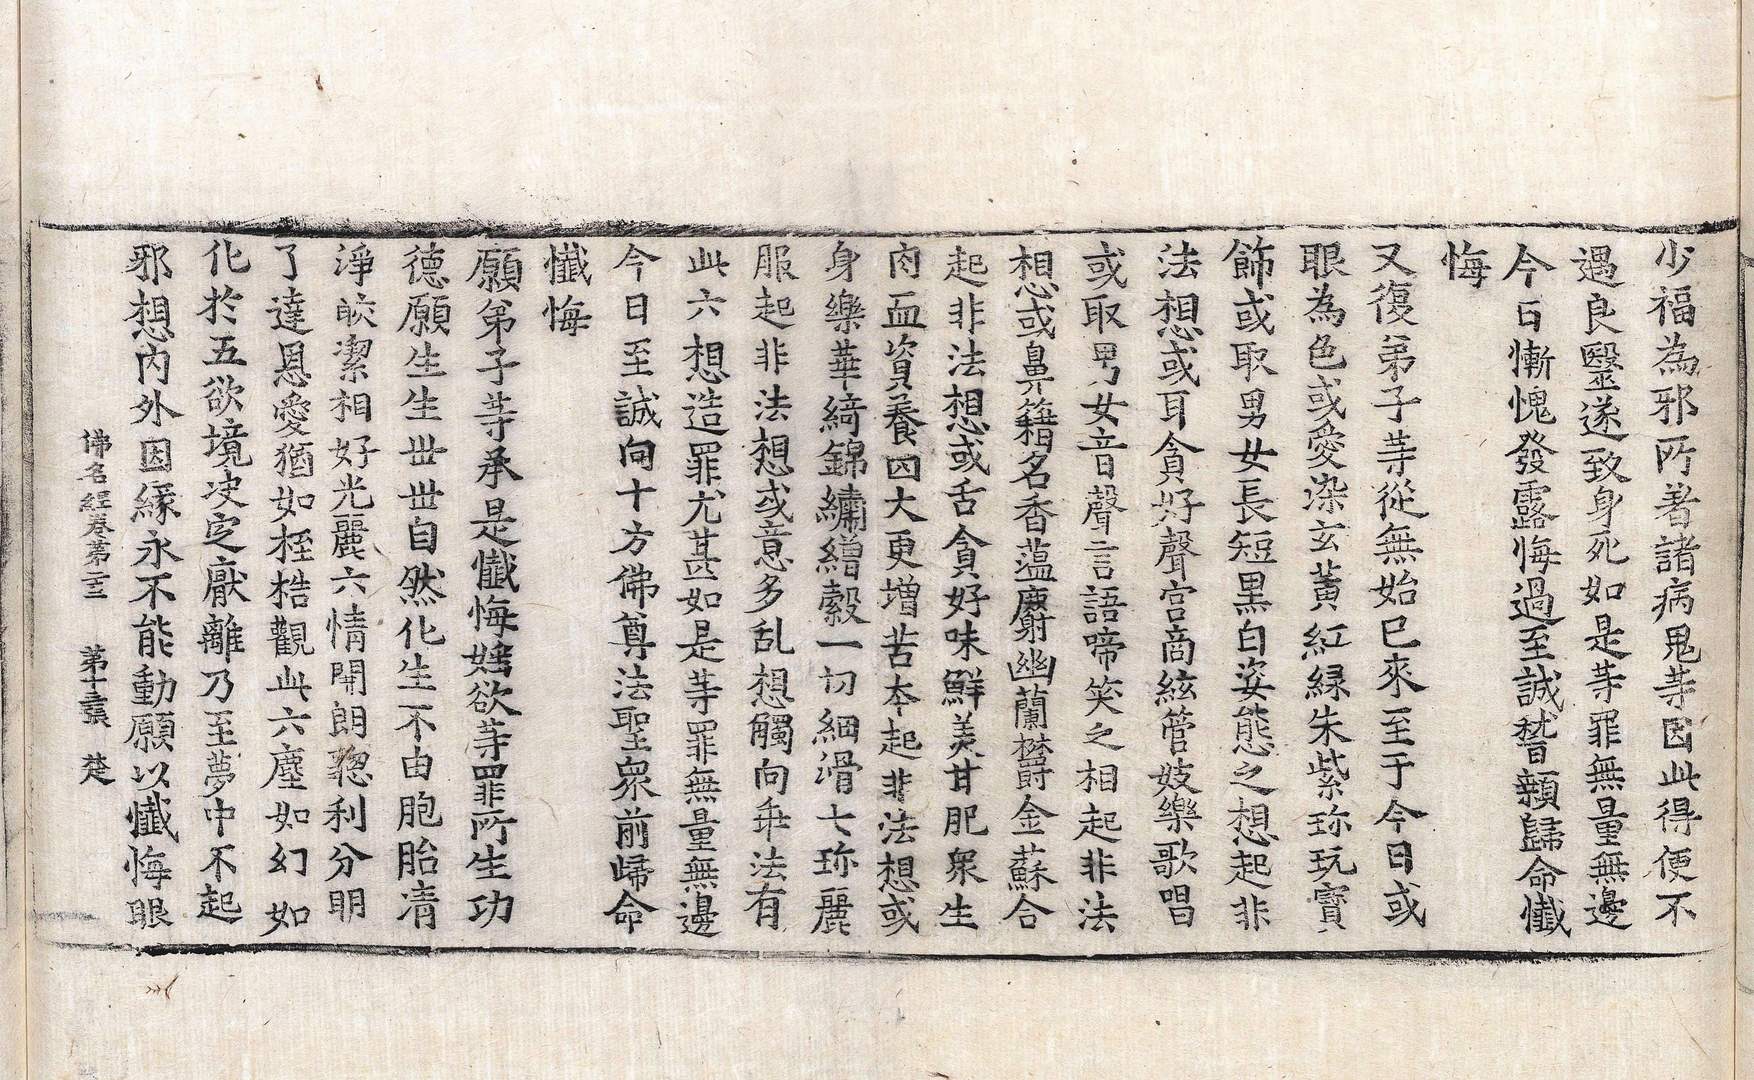 少福為邪所著諸病鬼等因此得便不
遇良毉遂致身死如是等罪無量無邊
今日慚愧發露悔過至誠𥡴顙歸命懺
悔
又復弟子等從無始已來至于今日或
眼為色或愛染玄黃紅緑朱紫珎玩寶
飾或取男女長短黒白姿態之想起非
法想或耳貪好聲宫商絃管妓樂歌唱
或取男女音聲言語啼笑之相起非法
想或鼻籍名香蘊麝幽蘭欝金蘇合
起非法想或舌貪好味鮮美甘肥衆生
肉血資養四大更增苦本起非法想或
身樂華綺錦繡繒縠一切細滑七珎麗
服起非法想或意多乱想觸向乖法有
此六想造罪尤甚如是等罪無量無邊
今日至誠向十方佛尊法聖衆前歸命
懺悔
願弟子等承是懺悔婬欲等罪所生功
德願生生世世自然化生不由胞胎清
淨皎潔相好光麗六情開朗聦利分明
了達恩愛猶如桎梏觀此六塵如幻如
化於五欲境决定厭離乃至夢中不起
邪想內外因縁永不能動願以懺悔眼
佛名經卷第三 第十張 楚